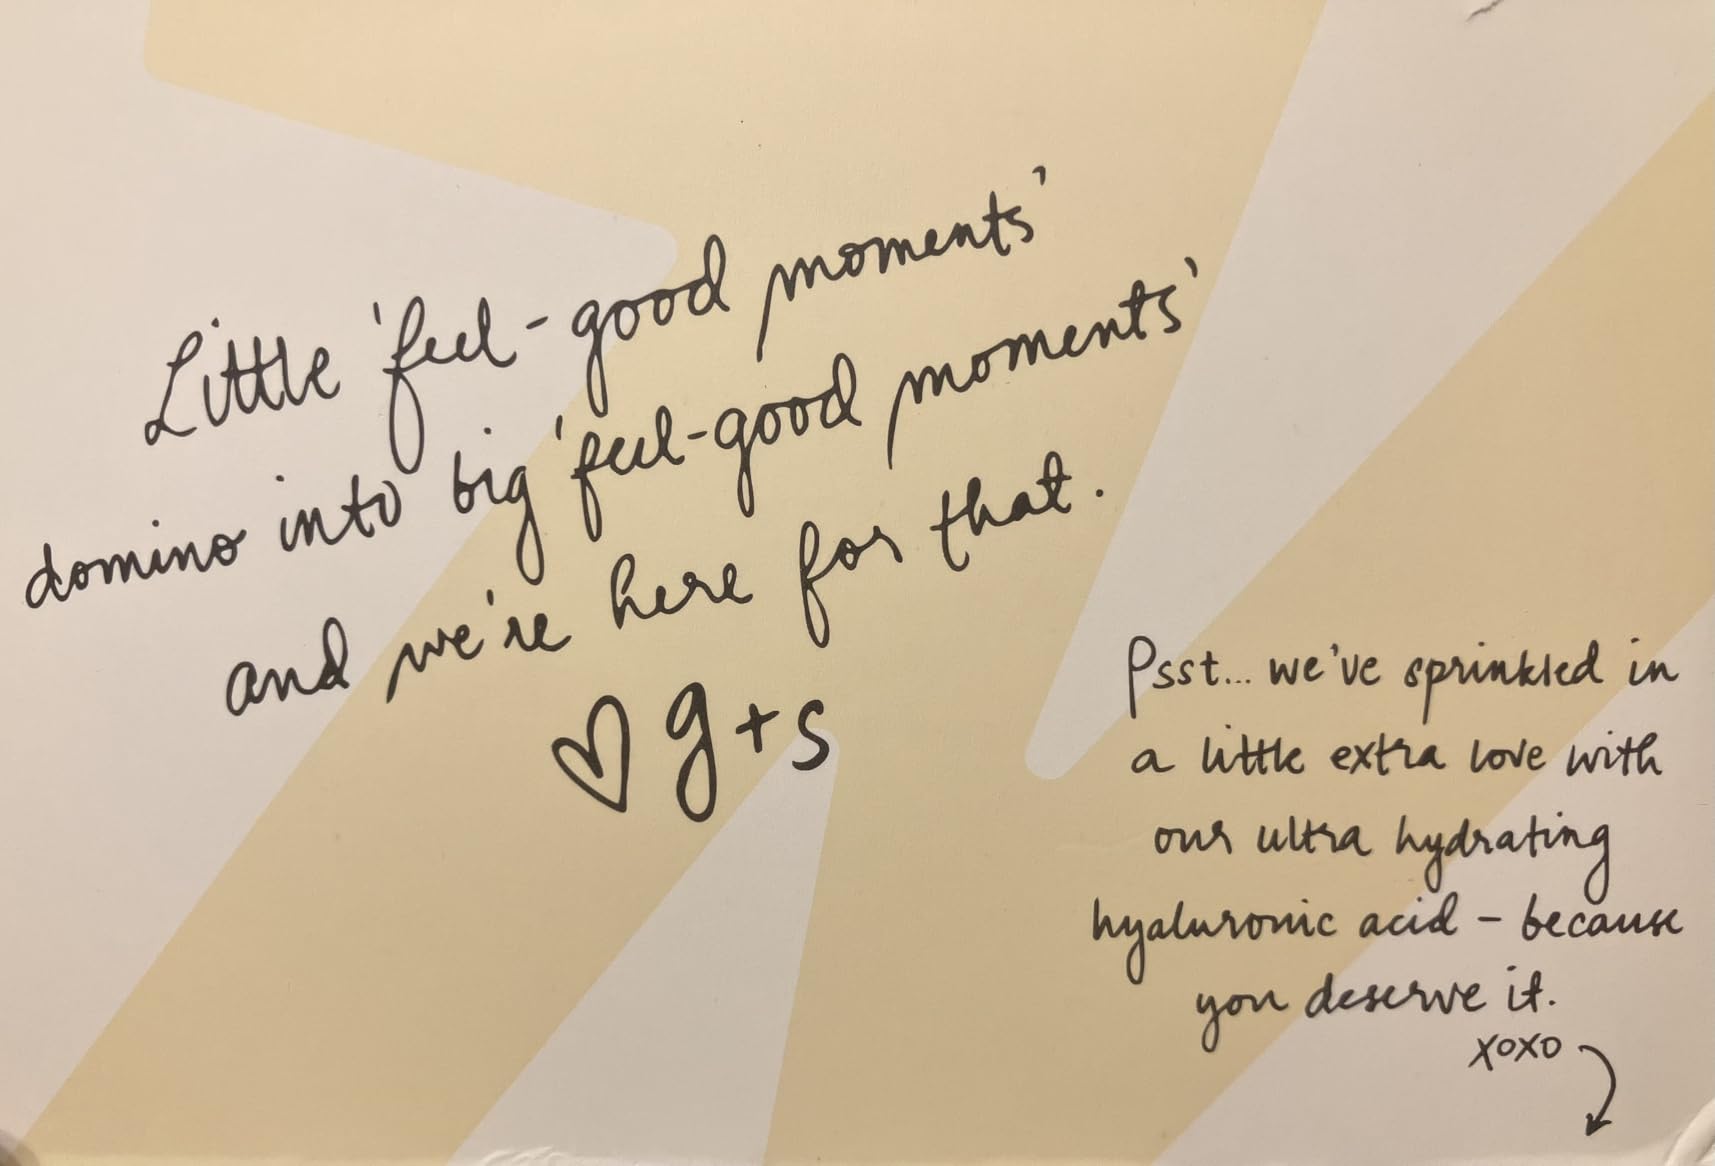 Little 'feel-good moments'
domino into big 'feel-good moments'
and we're here for that.
♡ g+s
Psst... we've sprinkled in
a little extra love with
our ultra hydrating
hyaluronic acid - because
you deserve it.
xoxo